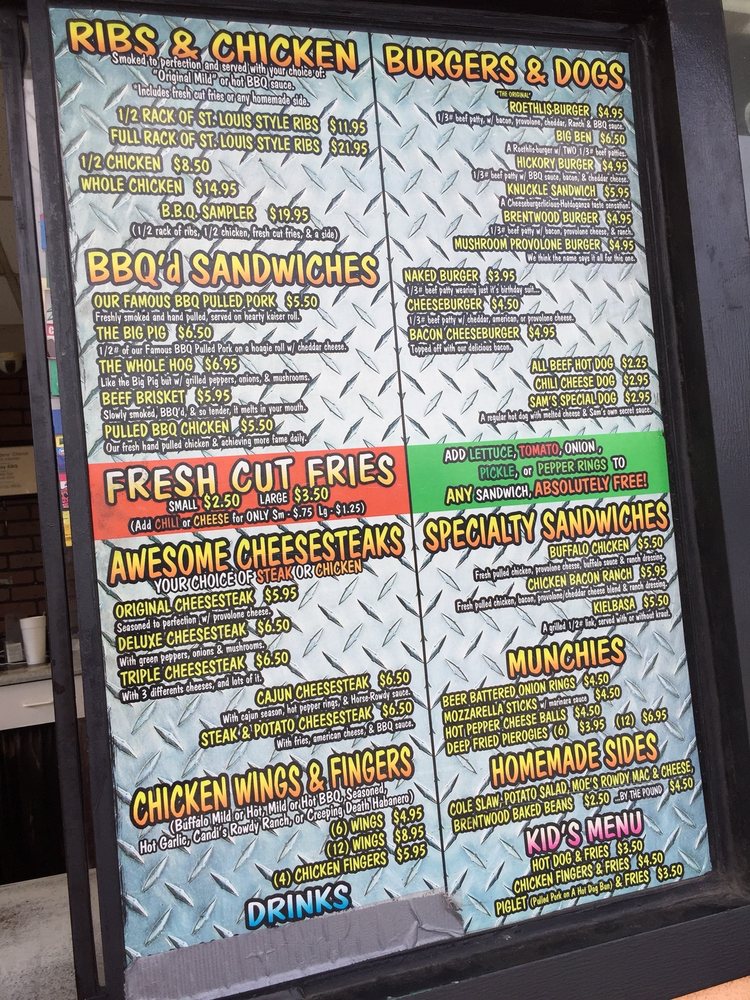 RIBS & CHICKEN
Smoked to perfection and served with your choice of:
"Original Mild" or hot BBQ sauce.
*Includes fresh cut fries or any homemade side.
1/2 RACK OF ST. LOUIS STYLE RIBS $11.95
FULL RACK OF ST. LOUIS STYLE RIBS $21.95
1/2 CHICKEN $8.50
WHOLE CHICKEN $14.95
B.B.Q. SAMPLER $19.95
(1/2 rack of ribs, 1/2 chicken, fresh cut fries, & a side)
BBQ'd SANDWICHES
OUR FAMOUS BBQ PULLED PORK $5.50
Freshly smoked and hand pulled, served on hearly kaiser roll.
THE BIG PIG $6.50
1/2# of our Famous BBQ Pulled Pork on a hoagie roll w/ cheddar cheese.
THE WHOLE HOG $6.95
Like the Big Pig but w/ grilled peppers, onions, & mushrooms.
BEEF BRISKET $5.95
Slowly smoked, BBQ'd, & so tender, it melts in your mouth.
PULLED BBQ CHICKEN $5.50
Our fresh hand pulled chicken & achieving more fame daily.
FRESH CUT FRIES
SMALL $2.50 LARGE $3.50
(Add CHILI or CHEESE for ONLY Sm - $.75 Lg - $1.25)
AWESOME CHEESESTEAKS
YOUR CHOICE OF STEAK OR CHICKEN
ORIGINAL CHEESESTEAK $5.95
Seasoned to perfection w/ provolone cheese.
DELUXE CHEESESTEAK $6.50
With green peppers, onions & mushrooms.
TRIPLE CHEESESTEAK $6.50
With 3 differents cheeses, and lots of it.
CAJUN CHEESESTEAK $6.50
With cajun season, hot pepper rings, & Horse-Rowdy sauce.
STEAK & POTATO CHEESESTEAK $6.50
With fries, american cheese, & BBQ sauce.
CHICKEN WINGS & FINGERS
(Buffalo Mild or Hot, Mild or Hot BBQ, Seasoned,
Hot Garlic, Candi's Rowdy Ranch, or Creeping Death Habanero)
(6) WINGS $4.95
(12) WINGS $8.95
(4) CHICKEN FINGERS $5.95
DRINKS
BURGERS & DOGS
"THE ORIGINAL"
ROETHLIS-BURGER $4.95
1/3# beef patty, w/ bacon, provolone, cheddar, Ranch & BBQ sauce.
BIG BEN $6.50
A Roethlis-burger w/ TWO 1/3# beef patties.
HICKORY BURGER $4.95
1/3# beef patty w/ BBQ sauce, bacon, & cheddar cheese.
KNUCKLE SANDWICH $5.95
A Cheeseburgerlicious-Hotdoganza taste sensation!
BRENTWOOD BURGER $4.95
1/3# beef patty w/ bacon, provolone cheese, & ranch.
MUSHROOM PROVOLONE BURGER $4.95
We think the name says it all for this one.
NAKED BURGER $3.95
1/3# beef patty wearing just it's birthday suit....
CHEESEBURGER $4.50
1/3# beef patty w/ cheddar, american, or provolone cheese.
BACON CHEESEBURGER $4.95
Topped off with our delicious bacon.
ALL BEEF HOT DOG $2.25
CHILI CHEESE DOG $2.95
SAM'S SPECIAL DOG $2.95
A regular hot dog with melted cheese & Sam's own secret sauce.
ADD LETTUCE, TOMATO, ONION,
PICKLE, or PEPPER RINGS TO
ANY SANDWICH, ABSOLUTELY FREE!
SPECIALTY SANDWICHES
BUFFALO CHICKEN $5.50
Fresh pulled chicken, provolone cheese, buffalo sauce & ranch dressing.
CHICKEN BACON RANCH $5.95
Fresh pulled chicken, bacon, provolone/cheddar cheese blend & ranch dressing.
KIELBASA $5.50
A grilled 1/2# link, served with or without kraut.
MUNCHIES
BEER BATTERED ONION RINGS $4.50
MOZZARELLA STICKS w/ marinara sauce $4.50
HOT PEPPER CHEESE BALLS $4.50
DEEP FRIED PIEROGIES (6) $3.95 (12) $6.95
HOMEMADE SIDES
COLE SLAW, POTATO SALAD, MOE'S ROWDY MAC & CHEESE,
BRENTWOOD BAKED BEANS $2.50 ...BY THE POUND $4.50
KID'S MENU
HOT DOG & FRIES $3.50
CHICKEN FINGERS & FRIES $4.50
PIGLET (Pulled Pork on A Hot Dog Bun) & FRIES $3.50